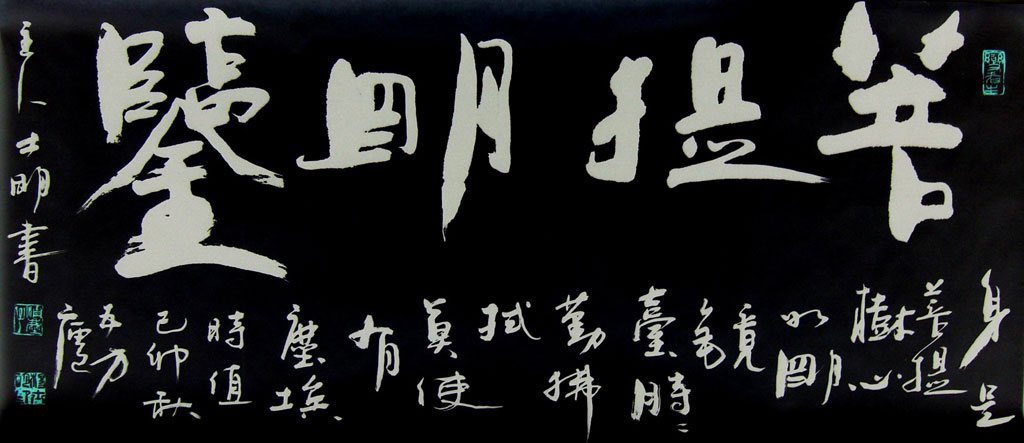 菩提明鑒
身是
菩提
樹心
如明
鏡
臺時〻
勤拂
拭
莫使
有
塵埃
時值
己卯秋
方
廬
主人士明書